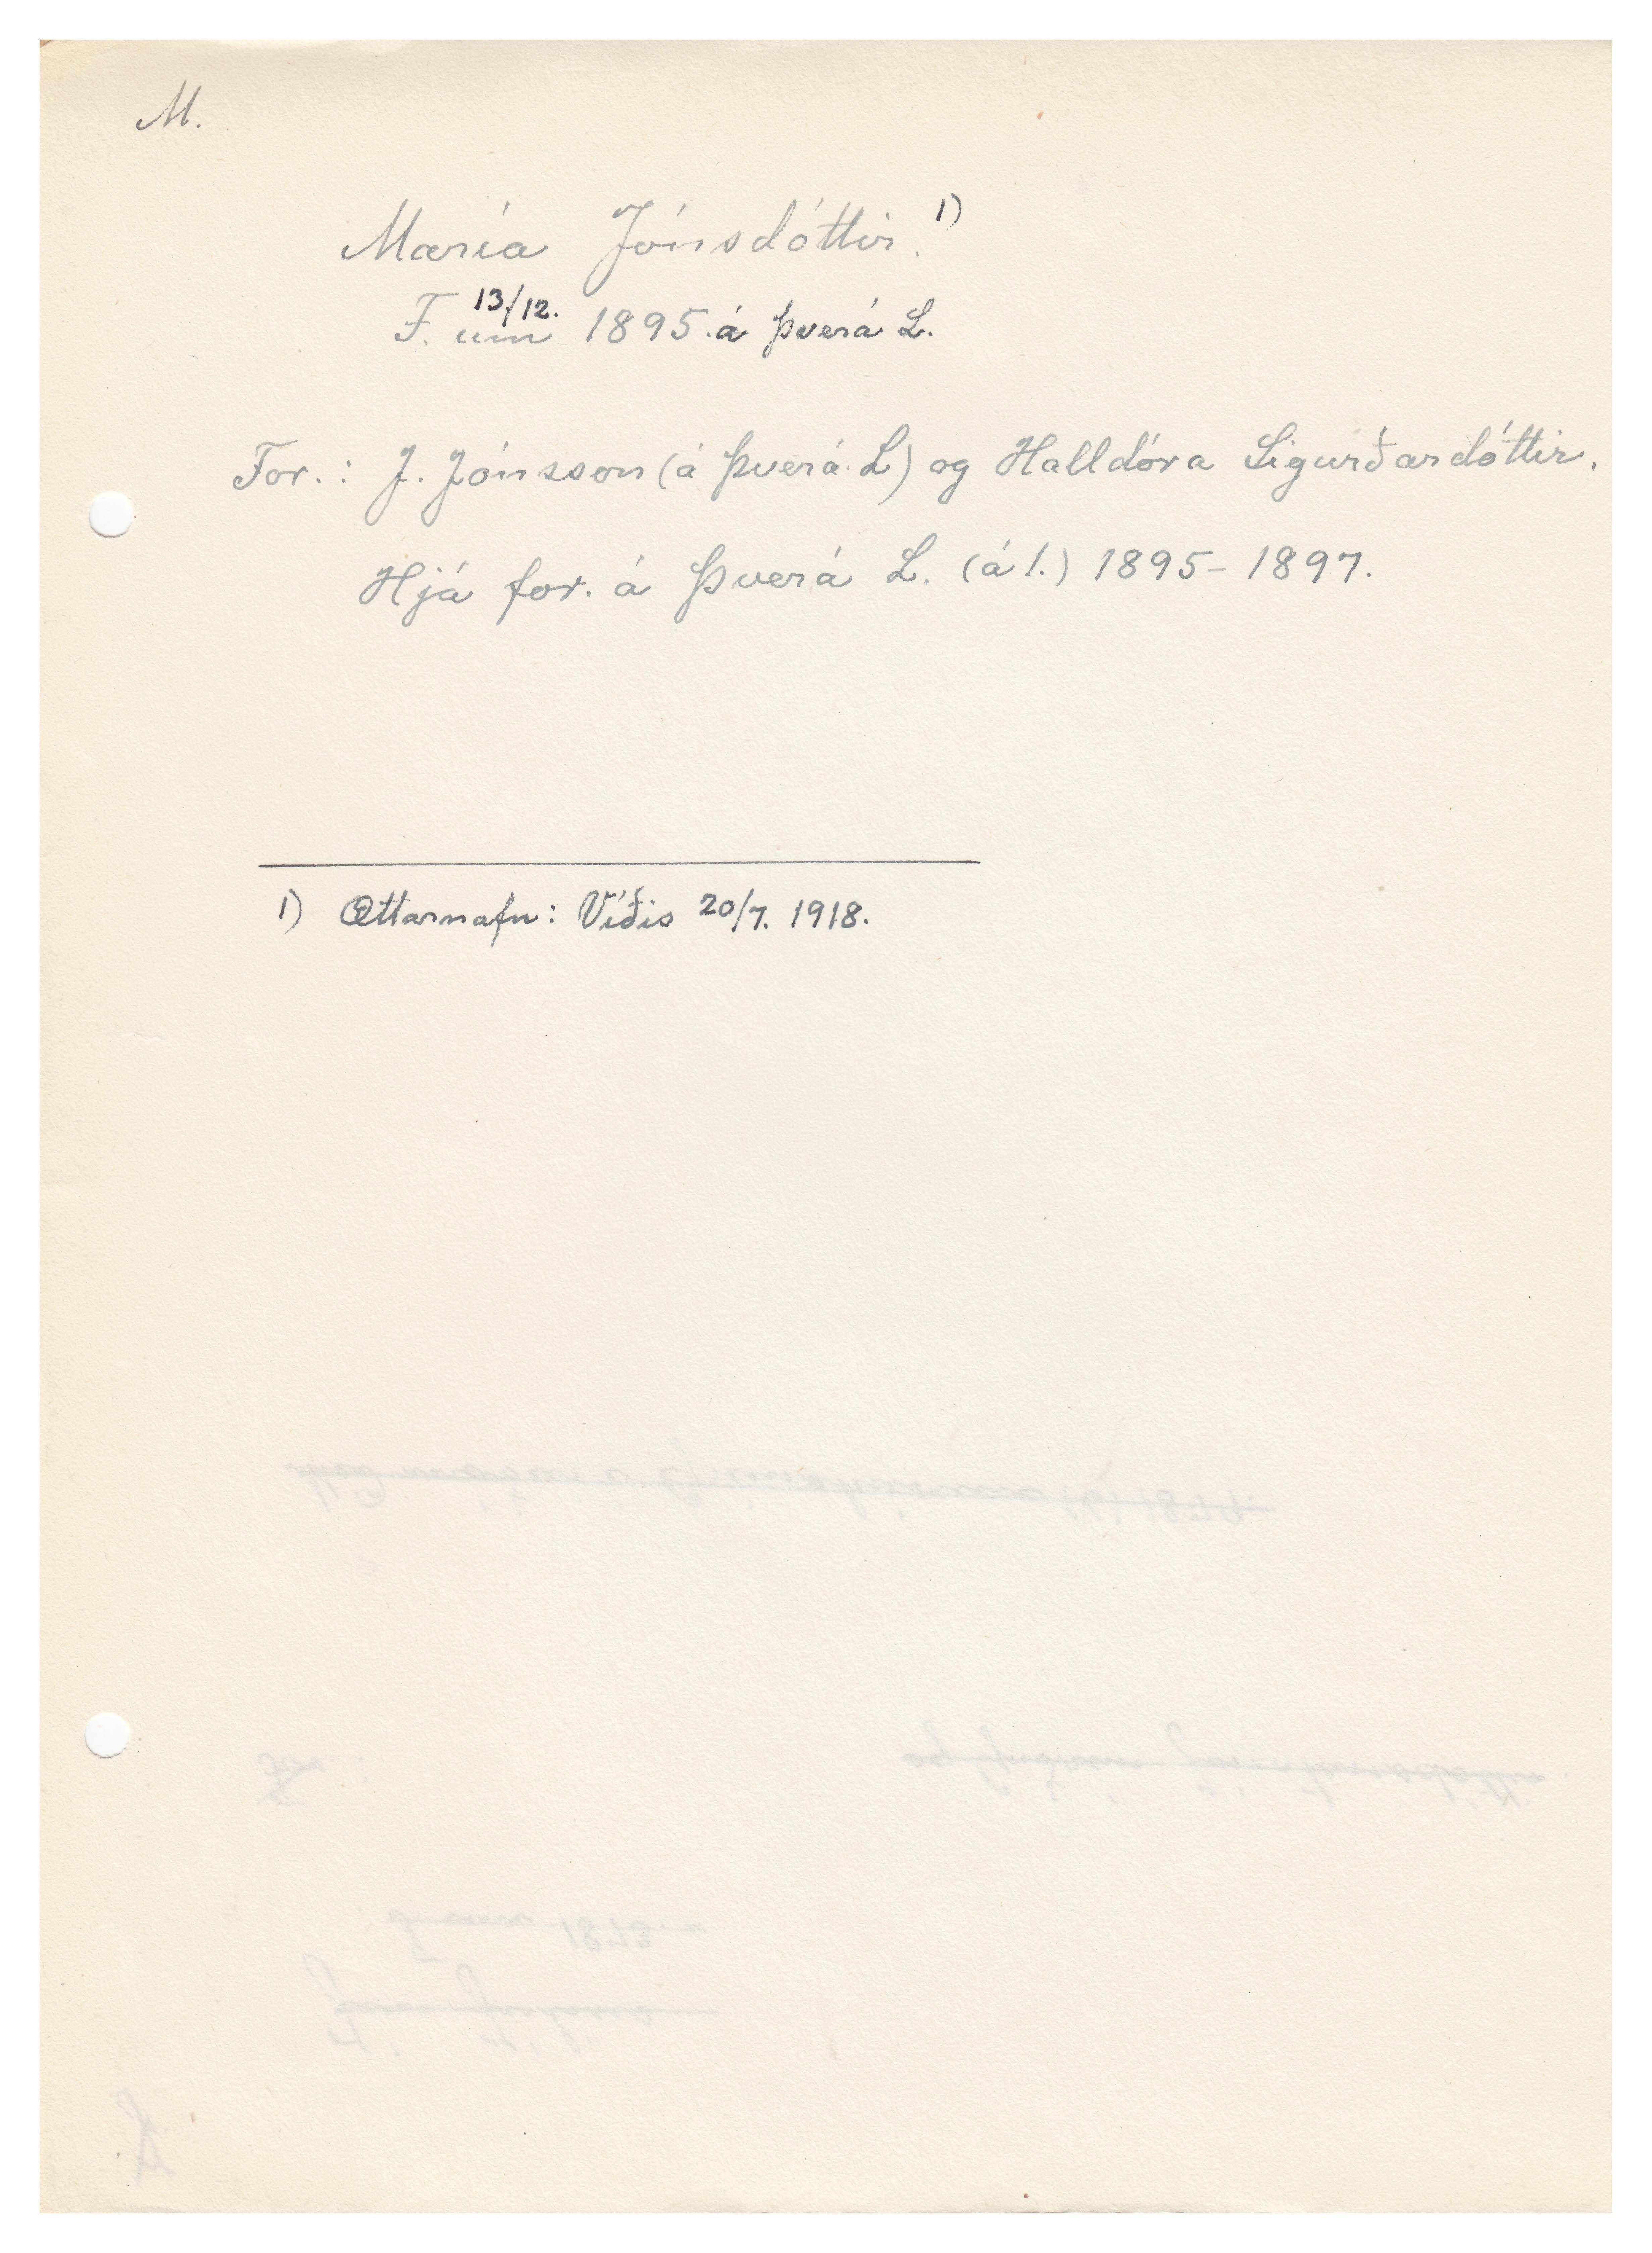 M.
María Jónsdóttir. 1)
F. um 13/12. 1895. á Þverá L.
For.: J. Jónsson (á Þverá L) og Halldóra Sigurðardóttir.
Hjá for. á Þverá L. (á l.) 1895-1897.
1) Ættarnafn: Víðis 20/7. 1918.